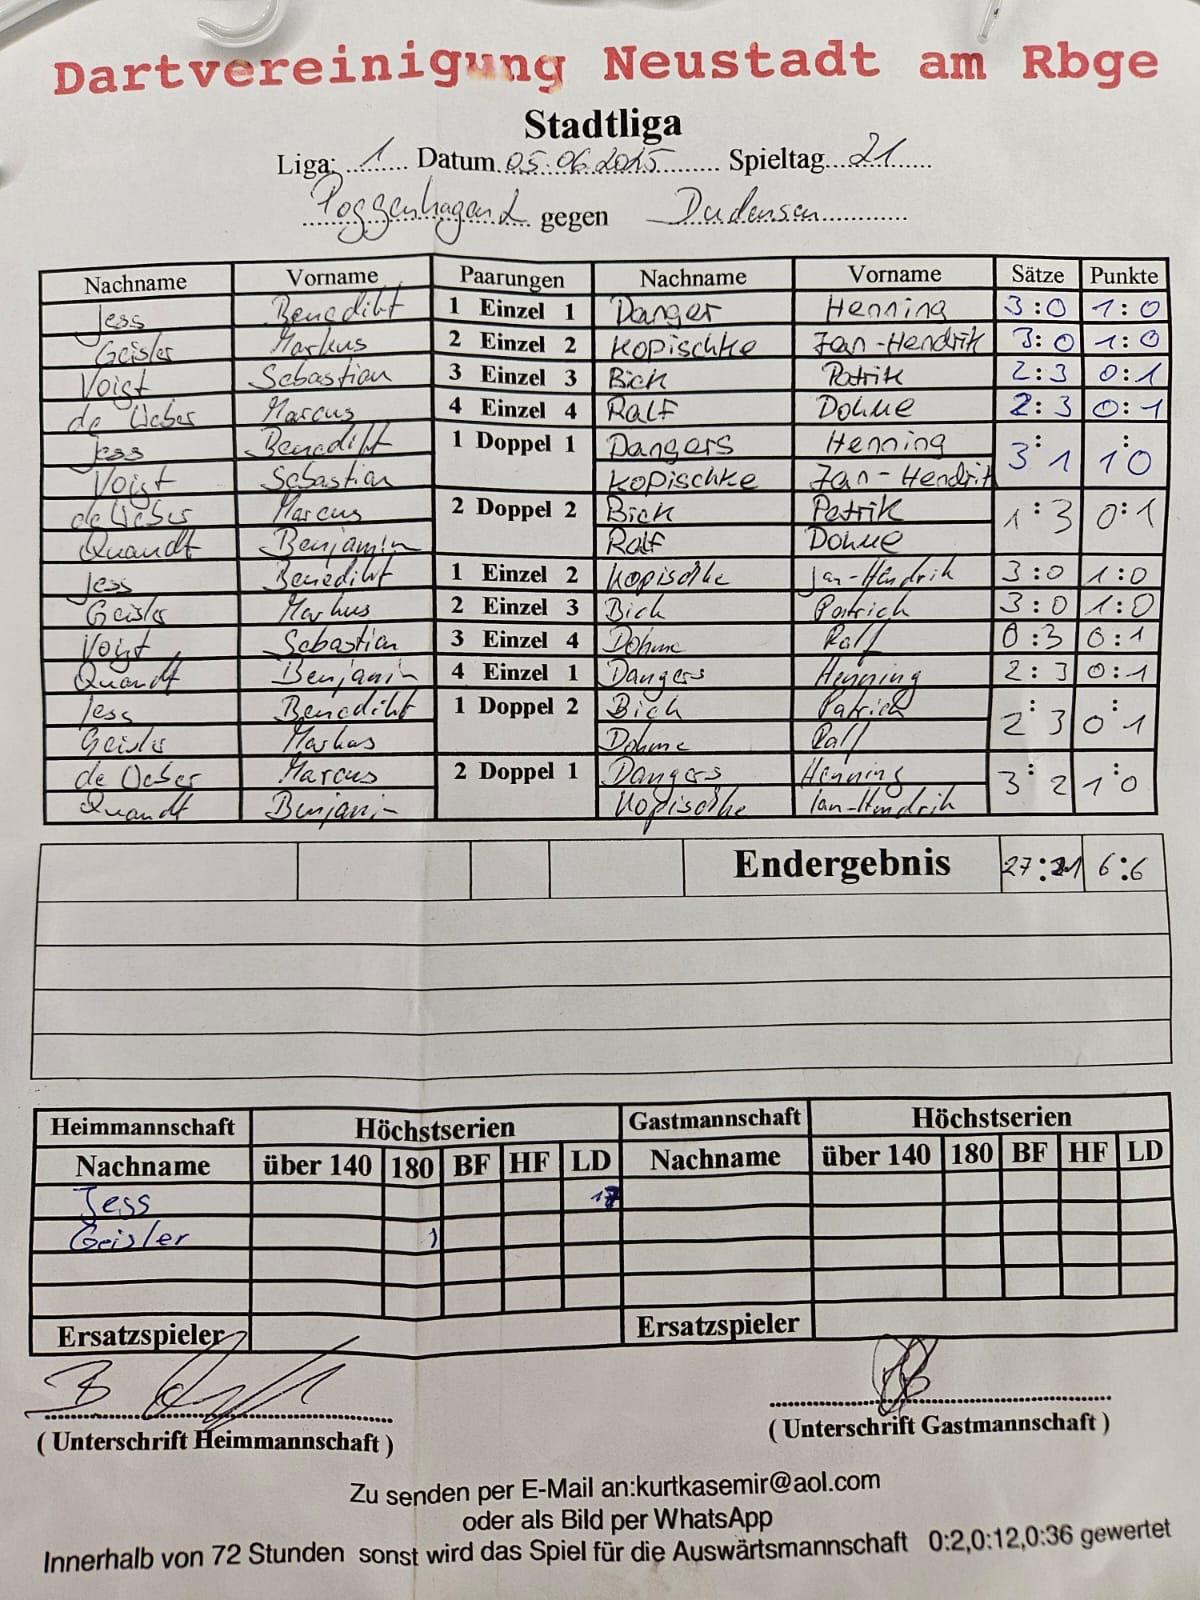 Dartvereinigung Neustadt am Rbge
Stadtliga
Liga: 1 Datum 05.06.2025 Spieltag 21
Poggenhagen 2 gegen Dudensen
Nachname Vorname Paarungen Nachname Vorname Sätze Punkte
Jess Benedikt 1 Einzel 1 Danger Henning 3:0 1:0
Geisler Markus 2 Einzel 2 Kopischke Jan-Hendrik 3:0 1:0
Voigt Sebastian 3 Einzel 3 Bick Patrik 2:3 0:1
de Weber Marcus 4 Einzel 4 Ralf Dohme 2:3 0:1
Jess Benedikt 1 Doppel 1 Dangers Henning 3:1 1:0
Voigt Sebastian Kopischke Jan-Hendrik
de Weber Marcus 2 Doppel 2 Bick Patrik 1:3 0:1
Quandt Benjamin Ralf Dohme
Jess Benedikt 1 Einzel 2 Kopischke Jan-Hendrik 3:0 1:0
Geisler Markus 2 Einzel 3 Bick Patrick 3:0 1:0
Voigt Sebastian 3 Einzel 4 Dohme Ralf 0:3 0:1
Quandt Benjamin 4 Einzel 1 Dangers Henning 2:3 0:1
Jess Benedikt 1 Doppel 2 Bick Patrick 2:3 0:1
Geisler Markus Dohme Ralf
de Weber Marcus 2 Doppel 1 Dangers Henning 3:2 1:0
Quandt Benjamin Kopischke Jan-Hendrik
Endergebnis 27:21 6:6
Heimmannschaft Höchstserien Gastmannschaft Höchstserien
Nachname über 140 180 BF HF LD Nachname über 140 180 BF HF LD
Jess 17
Geisler 1
Ersatzspieler Ersatzspieler
( Unterschrift Heimmannschaft ) ( Unterschrift Gastmannschaft )
Zu senden per E-Mail an:kurtkasemir@aol.com
oder als Bild per WhatsApp
Innerhalb von 72 Stunden sonst wird das Spiel für die Auswärtsmannschaft 0:2,0:12,0:36 gewertet